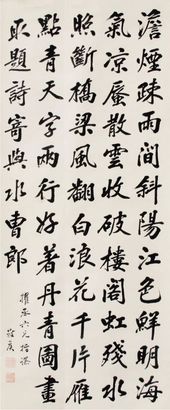 澹煙疎雨間斜陽江色鮮明海
氣凉蜃散雲收破樓閣虹殘水
照斷橋梁風翻白浪花千片雁
點青天字兩行好着丹青圖畫
取題詩寄與水曹郎
擢丞六兄指謬